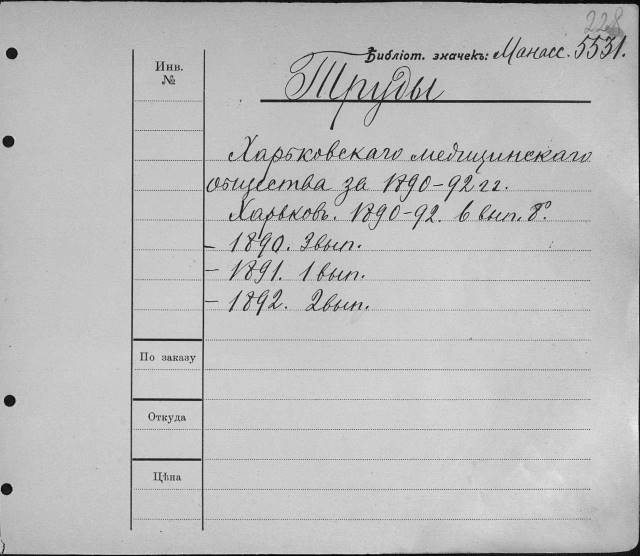 228
Библіот. значекъ: Манасс. 5531.
Инв.
№
Труды
Харьковскаго медицинскаго
общества за 1890-92 гг.
Харьковъ. 1890-92. 6 вып. 8º
– 1890. 3 вып.
– 1891. 1 вып.
– 1892. 2 вып.
По заказу
Откуда
Цѣна